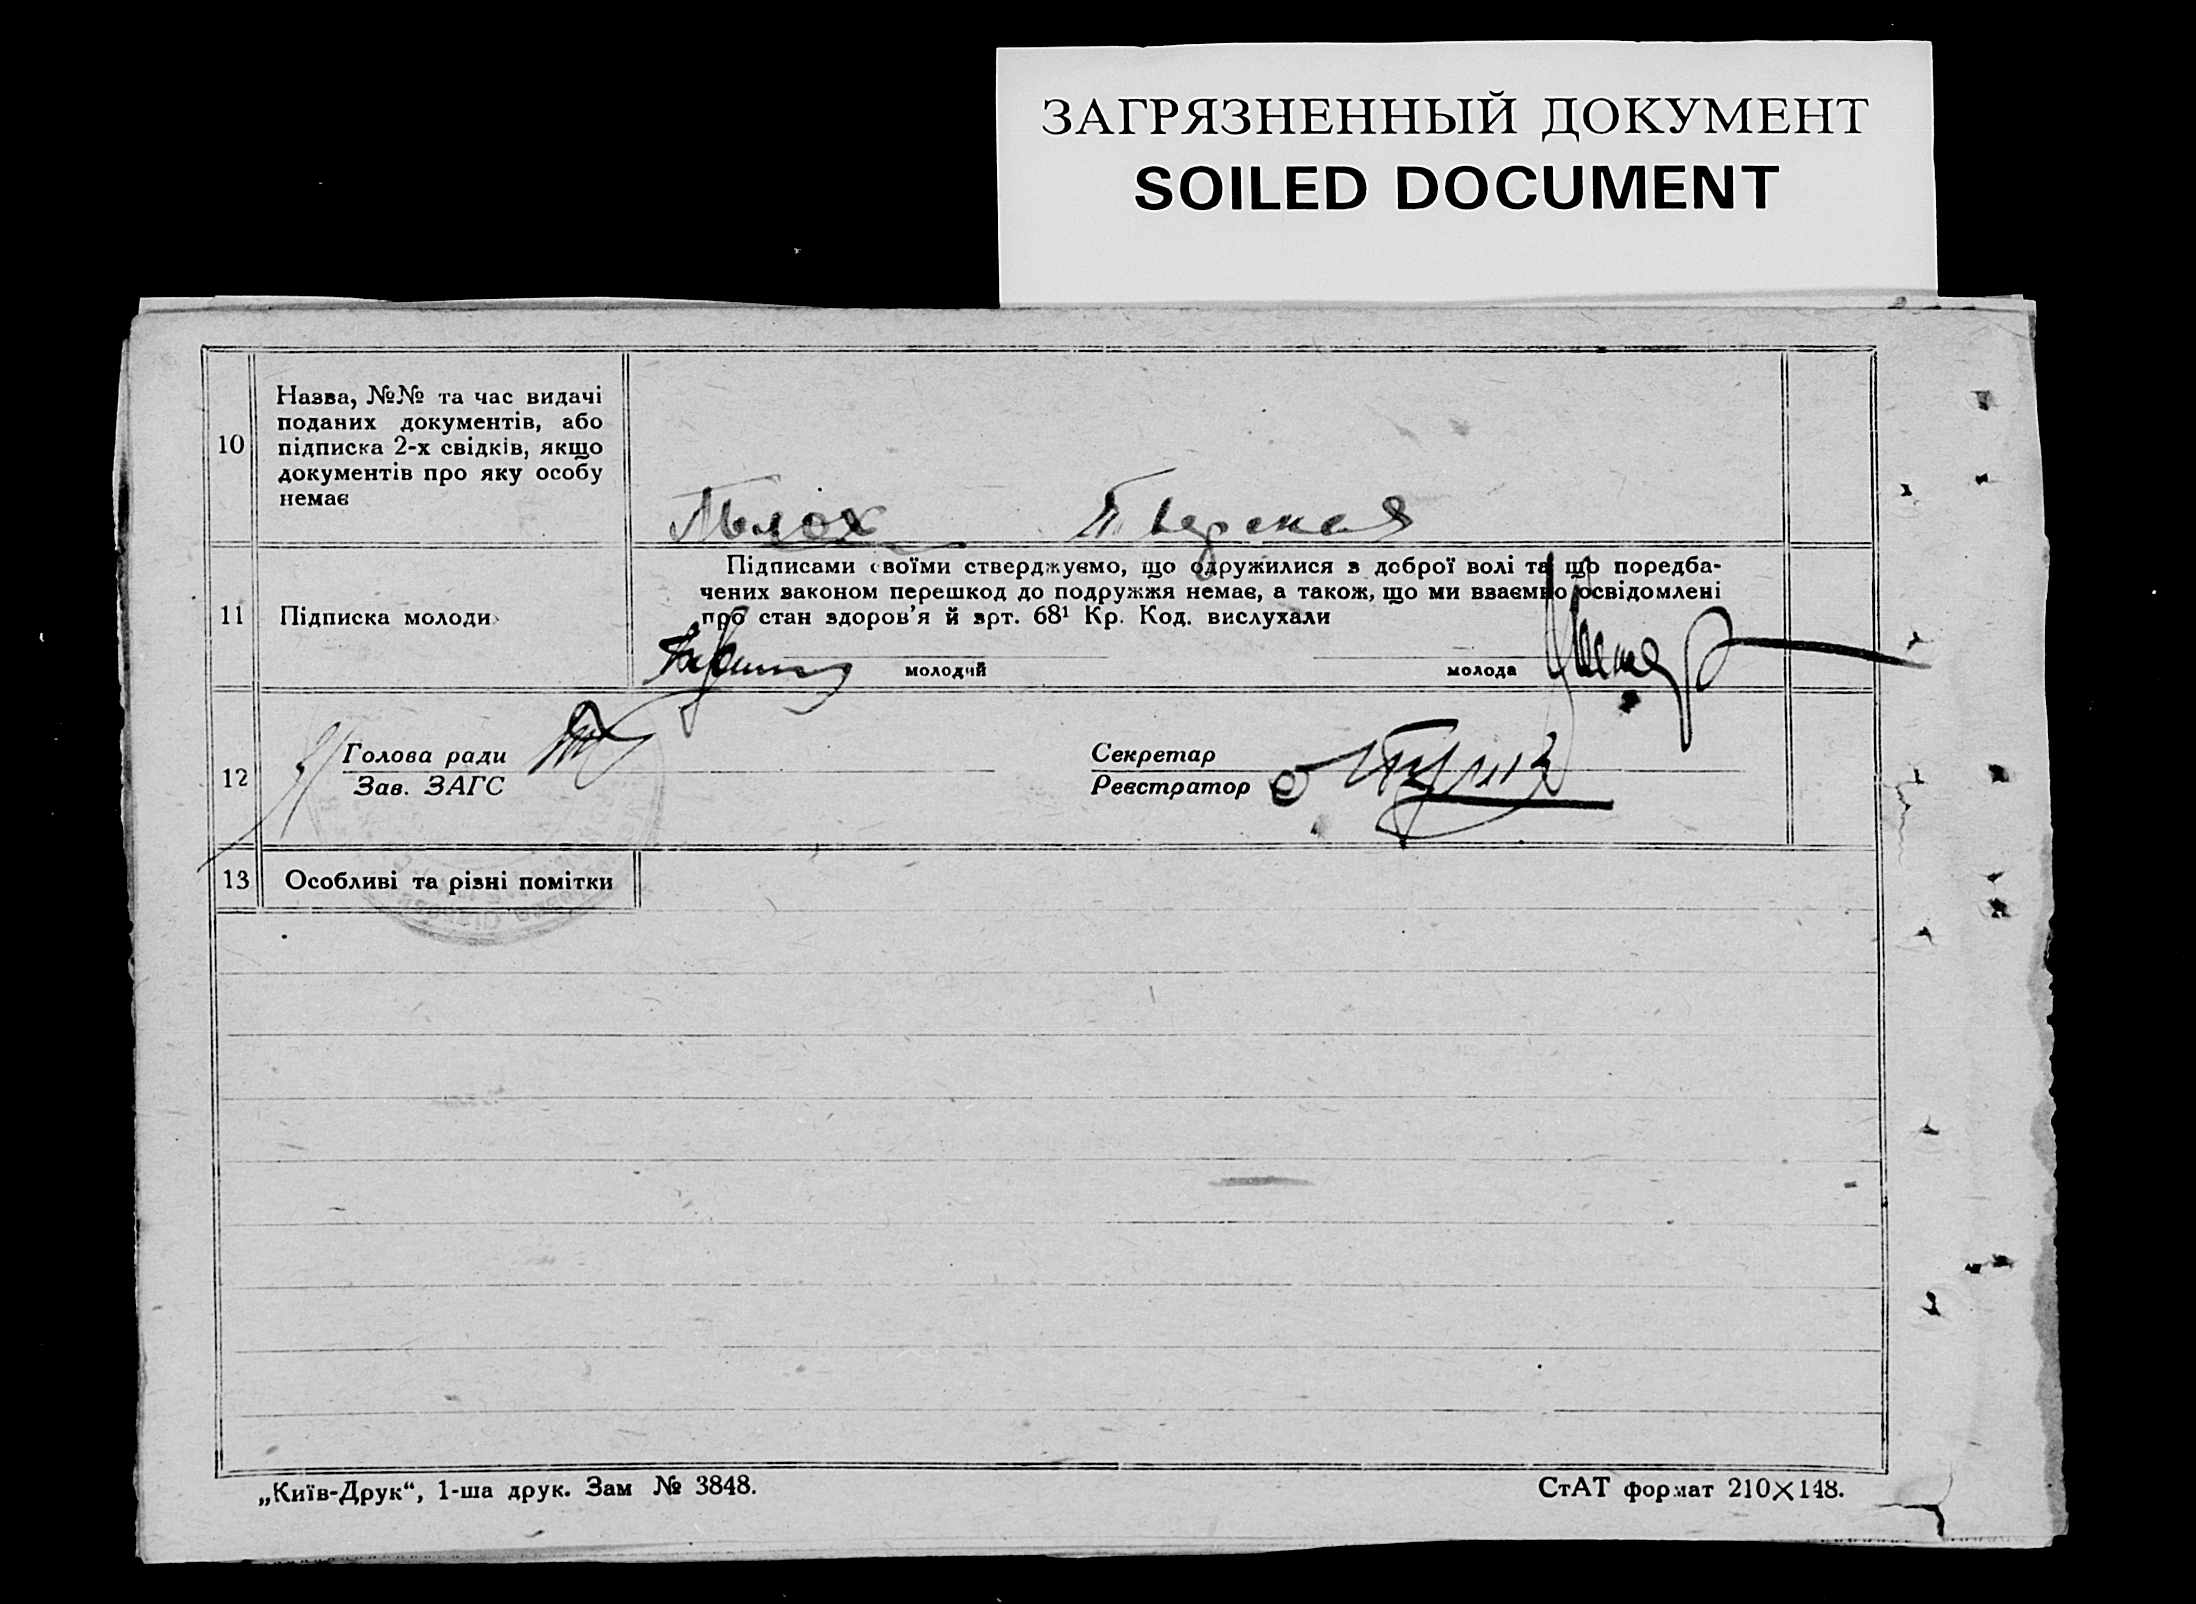 ЗАГРЯЗНЕННЫЙ ДОКУМЕНТ
SOILED DOCUMENT
10
Назва, №№ та час видачі
поданих документів, або
підписка 2-х свідків, якщо
документів про яку особу
немає
Тверская
11
Підписка молоди
Підписами своїми стверджуємо, що одружилися з доброї волі та що поредба-
чених законом перешкод до подружжя немає, а також, що ми взаємно освідомлені
про стан здоров'я й арт. 68¹ Кр. Код. вислухали
молодий
молода
12
Голова ради
Зав. ЗАГС
Секретар
Реєстратор
13
Особливі та різні помітки
„Київ-Друк“, 1-ша друк. Зам № 3848.
СтАТ формат 210×148.